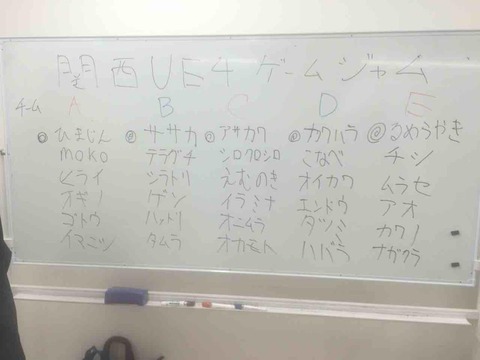 関西UE4ゲームジャム
チーム A B C D E
◎ひまじん ◎ササカ ◎アサカワ ◎カワハラ ◎るめうやき
moko テラグチ シロクロシロ こなべ チシ
ヒライ シラトリ えむのき オイカワ ムラセ
オギノ ゲン イラミナ エンドウ アオ
ゴトウ ハットリ オニムラ タツミ カワノ
イマニシ タムラ ハバラ ナガクラ